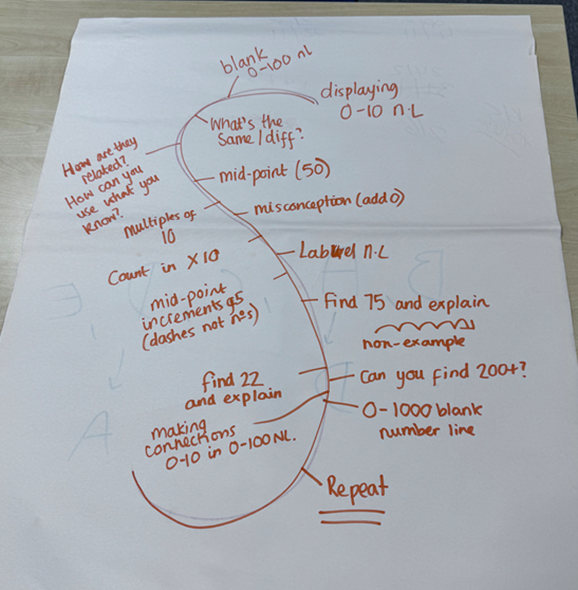 blank
0-100 nl
displaying
0-10 n.L
What's the
Same / diff?
How are they
related?
How can you
use what you
know?
mid-point (50)
misconception (add 0)
Multiples of
10
Labwel n.L
Count in X 10
mid-point
increments 95
(dashes not nºs)
Find 75 and explain
non-example
find 22
and explain
Can you find 200+?
0-1000 blank
number line
making
connections
0-10 in 0-100 NL.
Repeat
B
E
A